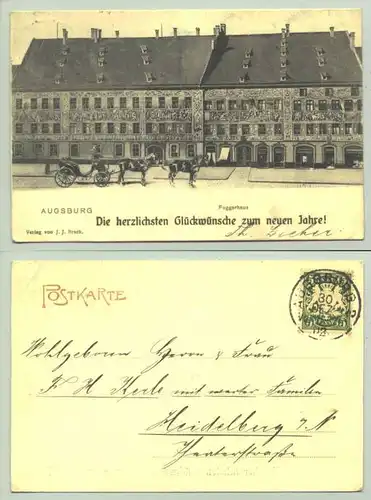 AUGSBURG
Fuggerhaus
Die herzlichsten Glückwünsche zum neuen Jahre!
Verlag von J. J. Brack.
Th.
POSTKARTE
AUGSBURG 2
30
DEZ
02
Wohlgeboren Herrn & Frau
F H mit werter Familie
Heidelberg a/N
Theaterstraße